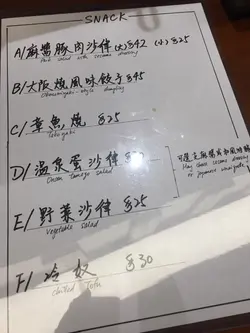 SNACK
A/麻醬豚肉沙律(大)$42 (小)$25
Pork salad with sesame dressing
B/大阪燒風味餃子$45
Okonomiyaki-style dumpling
C/章魚燒 $25
Takoyaki
D/溫泉蛋沙律 $25
Onsen tamago salad
可選麻醬或和風味醋
May choose sesame dressing
or Japanese vinaigrette
E/野菜沙律 $25
Vegetable salad
F/冷奴 $30
chilled Tofu